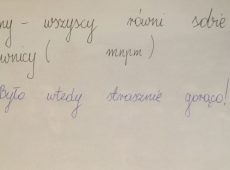 ny - wszyscy równi sobie
wnicy ( mnpm )
Było wtedy strasznie gorąco!